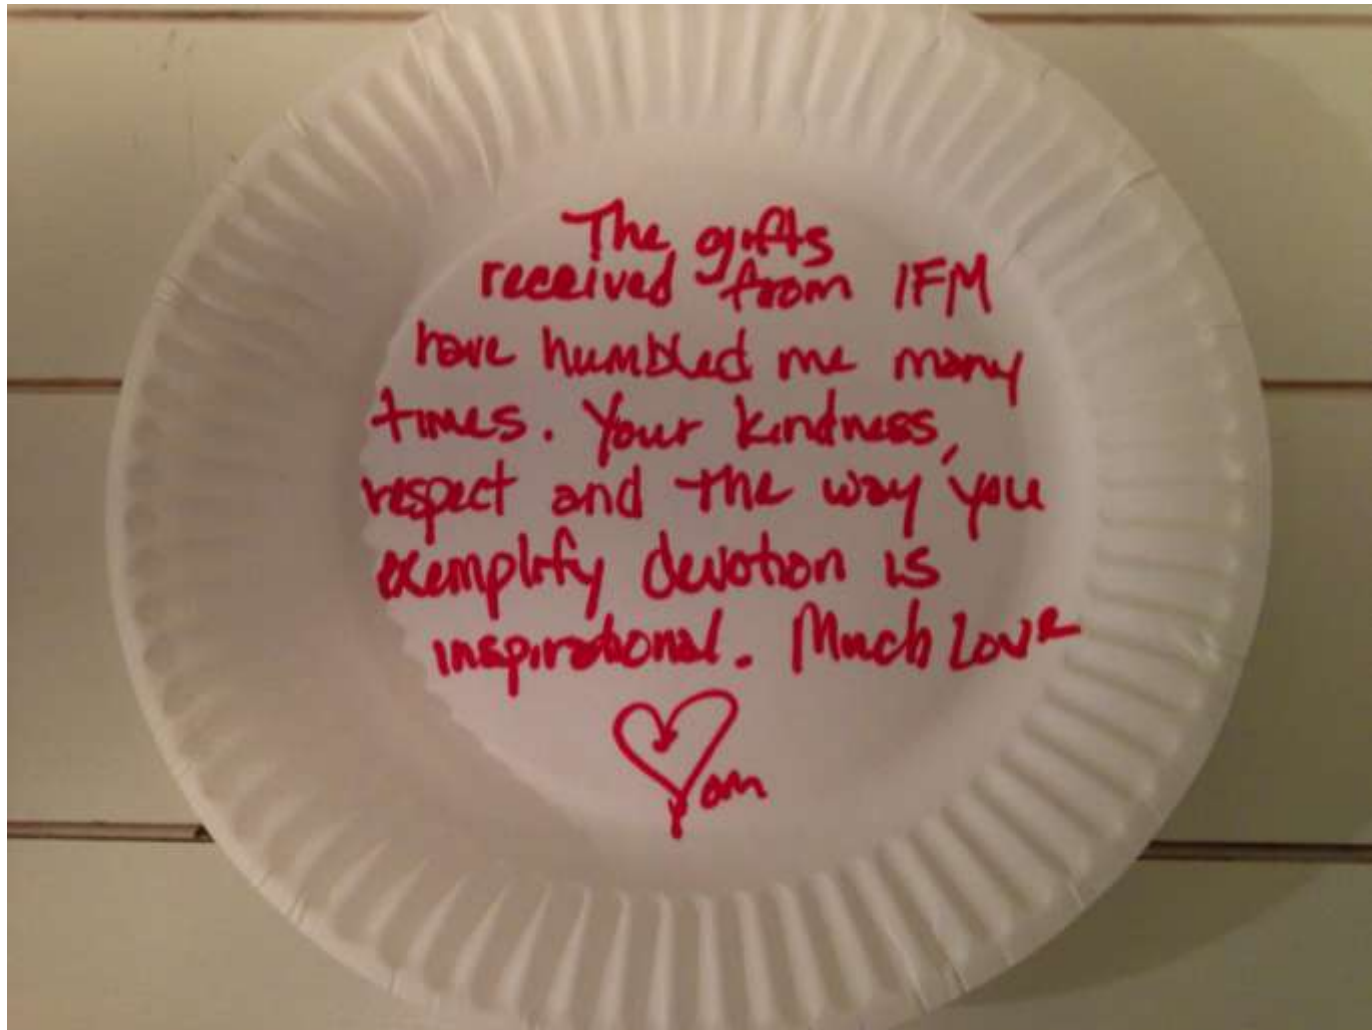 The gifts
received from IFM
have humbled me many
times. Your kindness,
respect and the way you
exemplify devotion is
inspirational. Much Love